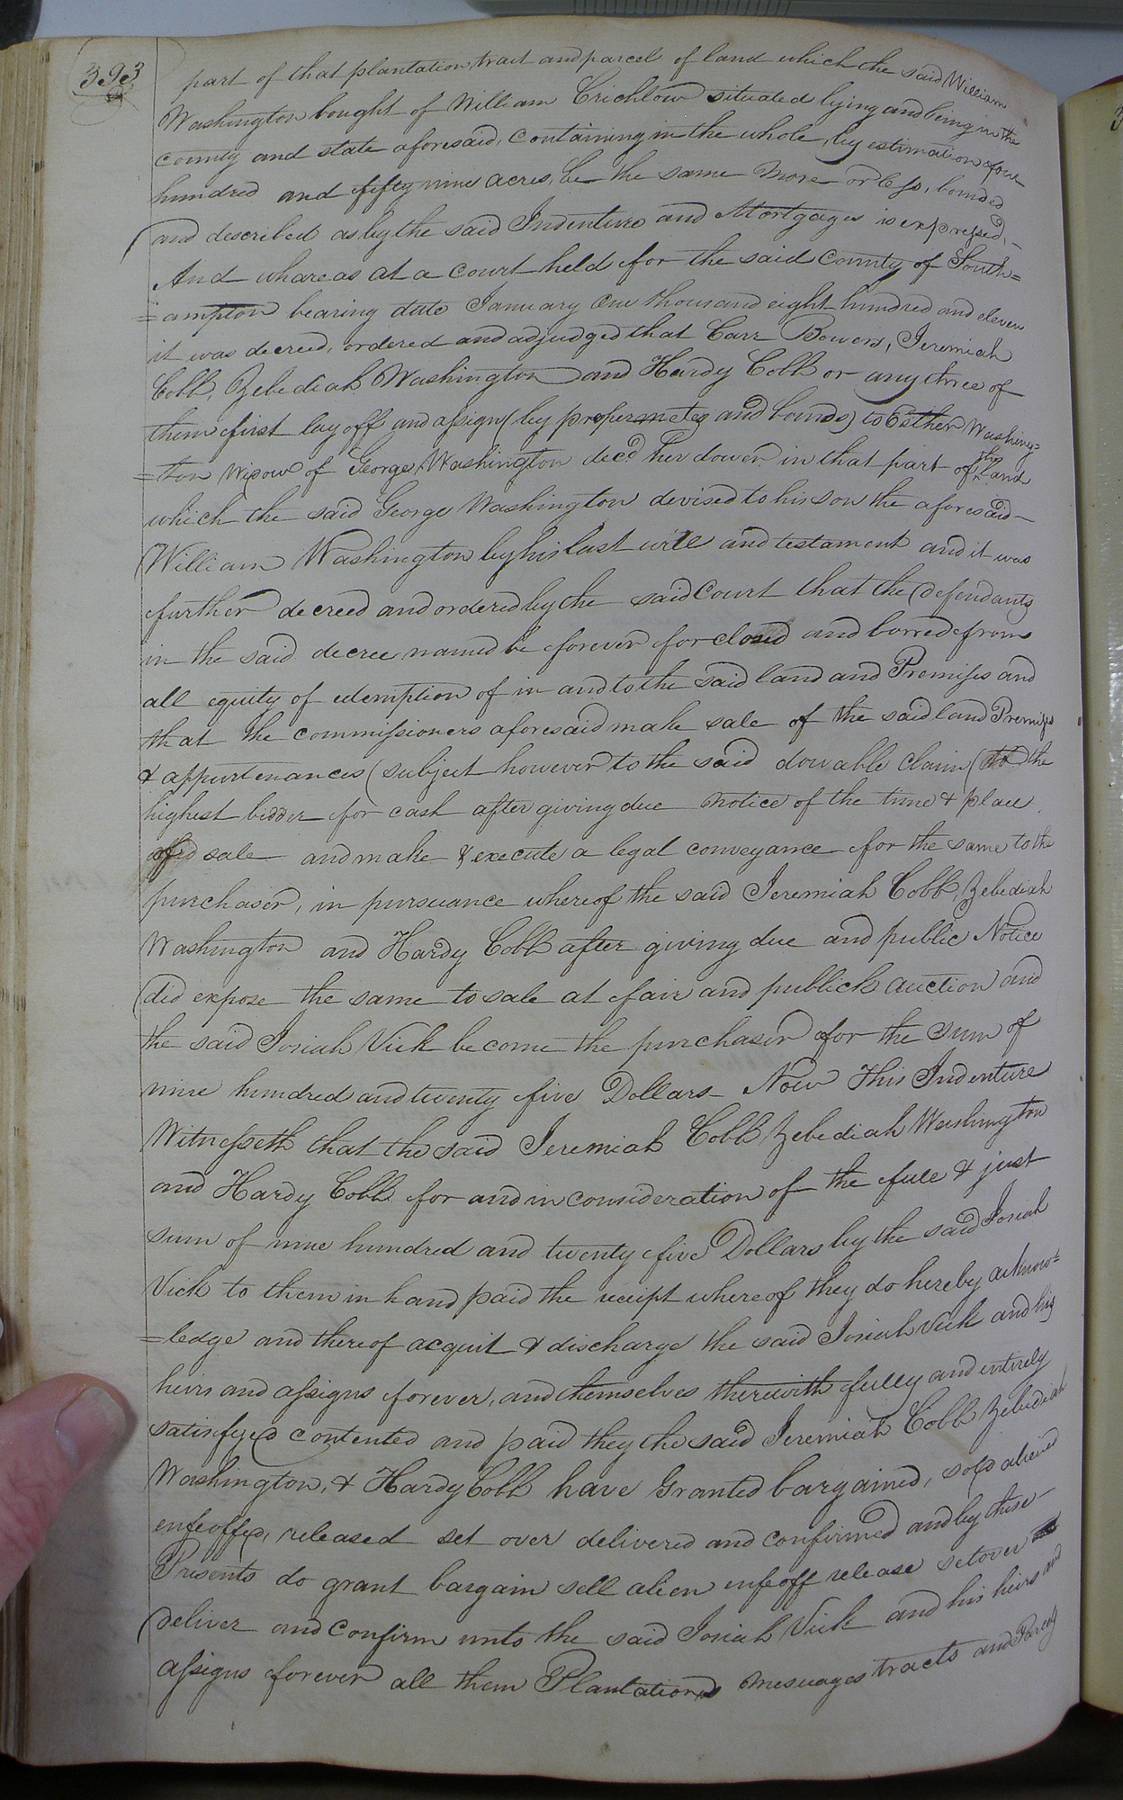 393
part of that plantation tract and parcel of land which the said William
Washington bought of William Crichlow situated lying and being in the
county and state aforesaid, containing in the whole, by estimation four
hundred and fifty nine acres, be the same more or less, bounded
and described as by the said Indenture and Mortgages is expressed,
And whareas at a court held for the said County of South=
=ampton bearing date January One thousand eight hundred and eleven
it was decreed, ordered and adjudged that Carr Bowers, Jeremiah
Cobb, Zebediah Washington and Hardy Cobb or any three of
them first lay off and assign (by proper metes and bounds) to Esther Washing=
=ton Widow of George Washington decd. her dower in that part of the land
which the said George Washington devised to his son the aforesaid
William Washington by his last will and testament and it was
further decreed and ordered by the said Court that the defendants
in the said decree named be forever forclosed and barred from
all equity of edemption of in and to the said land and Premises and
that the commissioners aforesaid make sale of the said land Premises
& appurtenances (subject however to the said dowable claim) to the
highest bidder for cash after giving due notice of the time & place
of sale and make & execute a legal conveyance for the same to the
purchaser, in pursuance whereof the said Jeremiah Cobb, Zebediah
Washington and Hardy Cobb after giving due and public Notice
did expose the same to sale at fair and publick auction and
the said Josiah Vick become the purchaser for the sum of
nine hundred and twenty five Dollars_ Now This Indenture
Witnesseth that the said Jeremiah Cobb Zebediah Washington
and Hardy Cobb for and in consideration of the full & just
sum of nine hundred and twenty five Dollars by the said Josiah
Vick to them in hand paid the receipt whereof they do hereby acknow=
=ledge and thereof acquit & discharge the said Josiah Vick and his
heirs and assigns forever, and themselves therewith fully and entirely
satisfyed contented and paid they the said Jeremiah Cobb Zebediah
Washington, & Hardy Cobb have Granted bargained, sold aliened
enfeoffed, released set over delivered and confirmed and by these
Presents do grant bargain sell alien enfeoff release setover
deliver and confirm unto the said Josiah Vick and his heirs and
assigns forever all them Plantations messuages tracts and Parcels